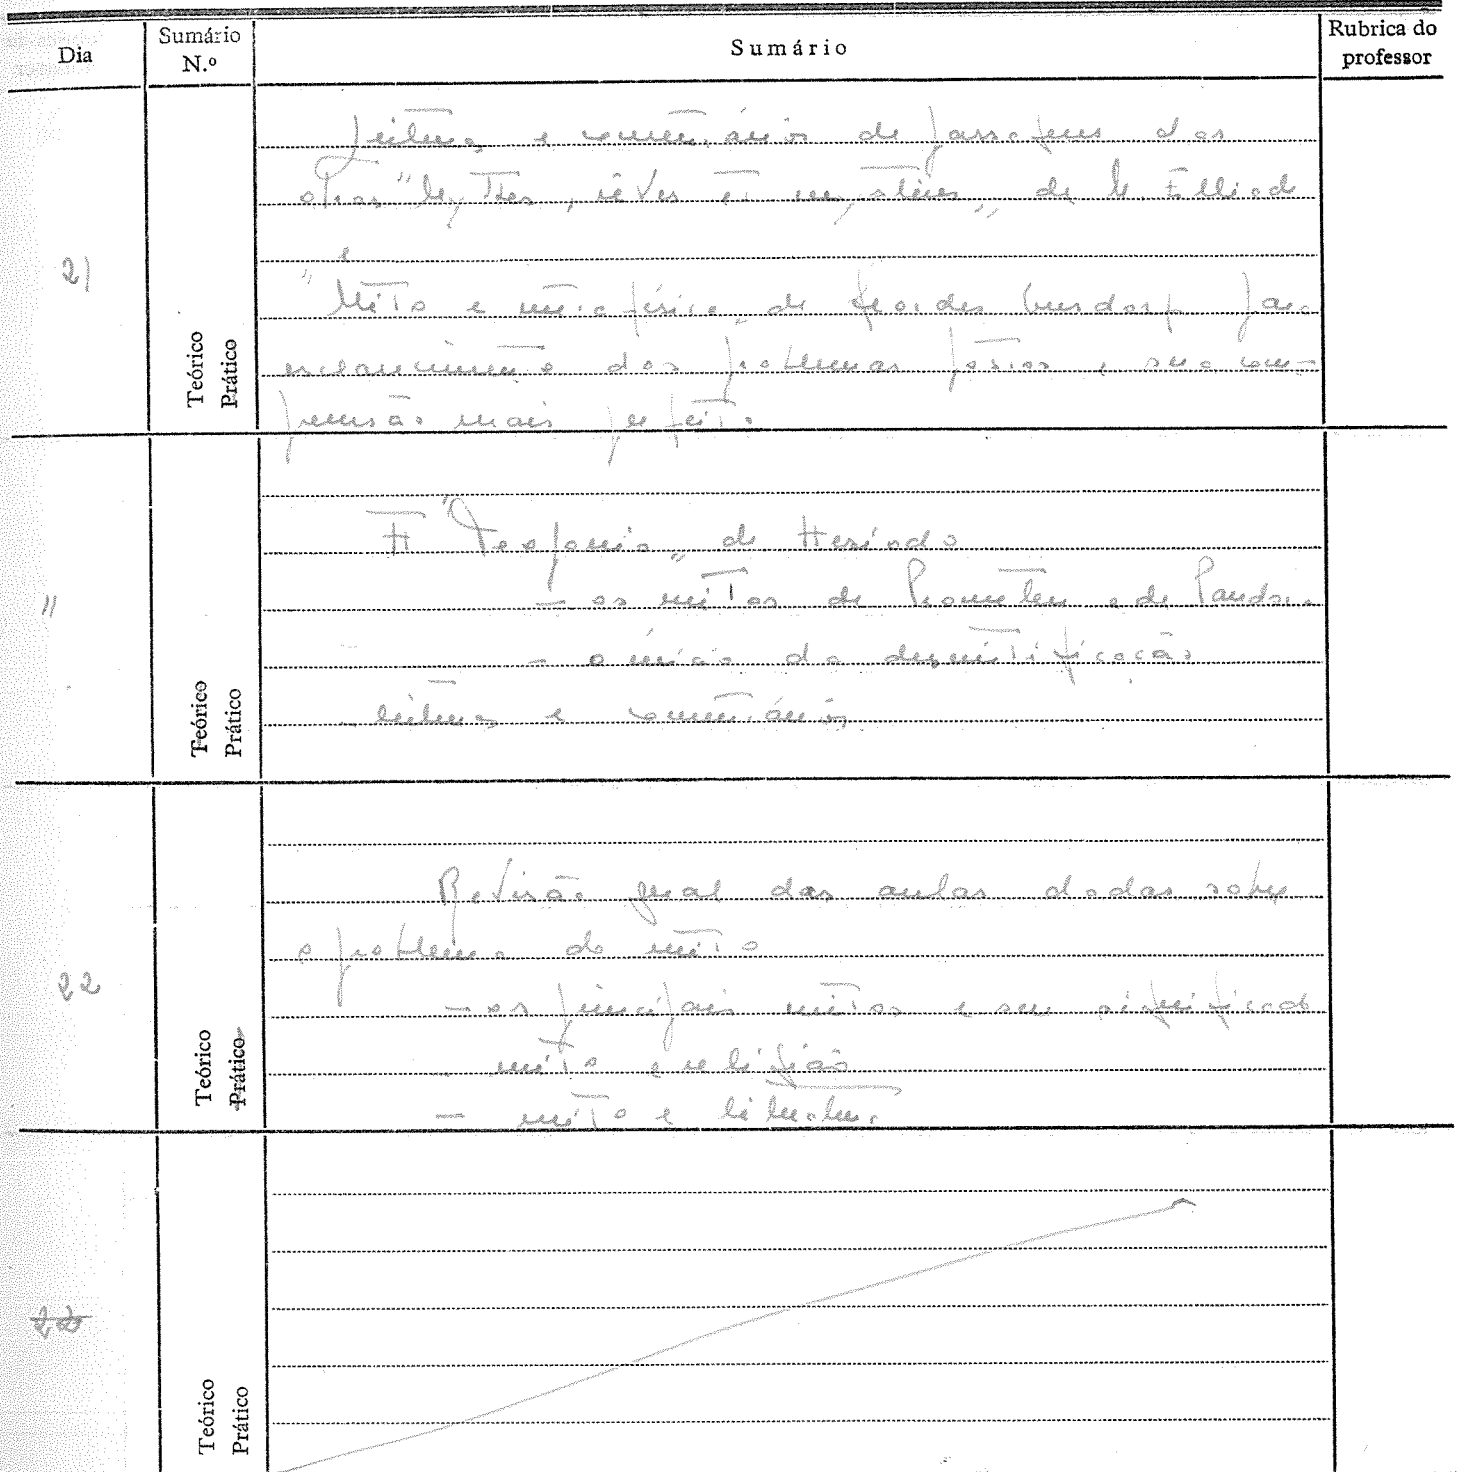 Dia
Sumário
N.º
Sumário
Rubrica do
professor
21
Teórico
Prático
Leitura e comentário de passagens das
obras "Mythes, rêves et mystères" de M. Elliade
e
"Mito e metafísica" de Georges Gusdorf para
esclarecimento dos problemas postos e sua com-
preensão mais perfeita
"
Teórico
Prático
A "Teogonia" de Hesíodo
- os mitos de Prometeu e de Pandora
- o início da desmitificação
- leitura e comentário
22
Teórico
Prático
Revisão geral das aulas dadas sobre
o problema do mito
- os principais mitos e seu significado
- mito e religião
- mito e literatura
22
Teórico
Prático